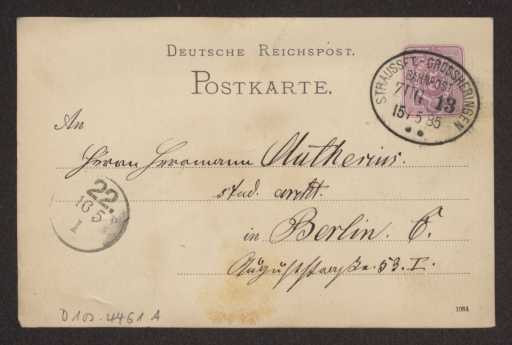 DEUTSCHE REICHSPOST.
POSTKARTE.
STRAUSSFT.-GROSSHERINGEN
BAHNPOST
ZUG 13
15/5 85
An
Herrn Herrmann Muthesius.
stud. archt.
in Berlin. C.
Auguststraße. 53. I.
22.
16 5
1
D 102-4461 A
108A